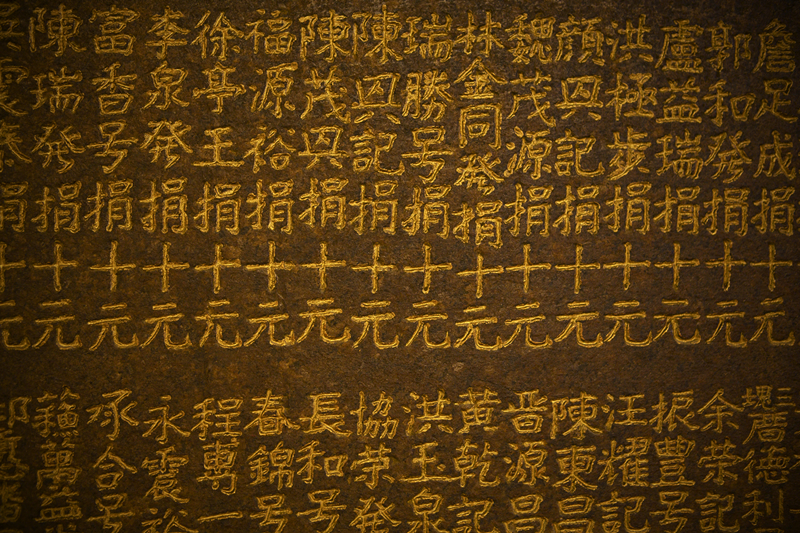 詹足成捐十元
郭和発捐十元
盧益瑞捐十元
洪極步捐十元
顏㒷記捐十元
魏茂源捐十元
林金同発捐十元
瑞勝号捐十元
陳㒷記捐十元
陳茂㒷捐十元
福源裕捐十元
徐亭王捐十元
李泉発捐十元
富香号捐十元
陳瑞発捐十元
震捐十元
德利
余荣記
振豐号
汪耀記
陳東昌
晋源昌
黄乾記
洪玉泉
協荣発
長和号
春錦号
程專一
永震裕
承合号
萬益